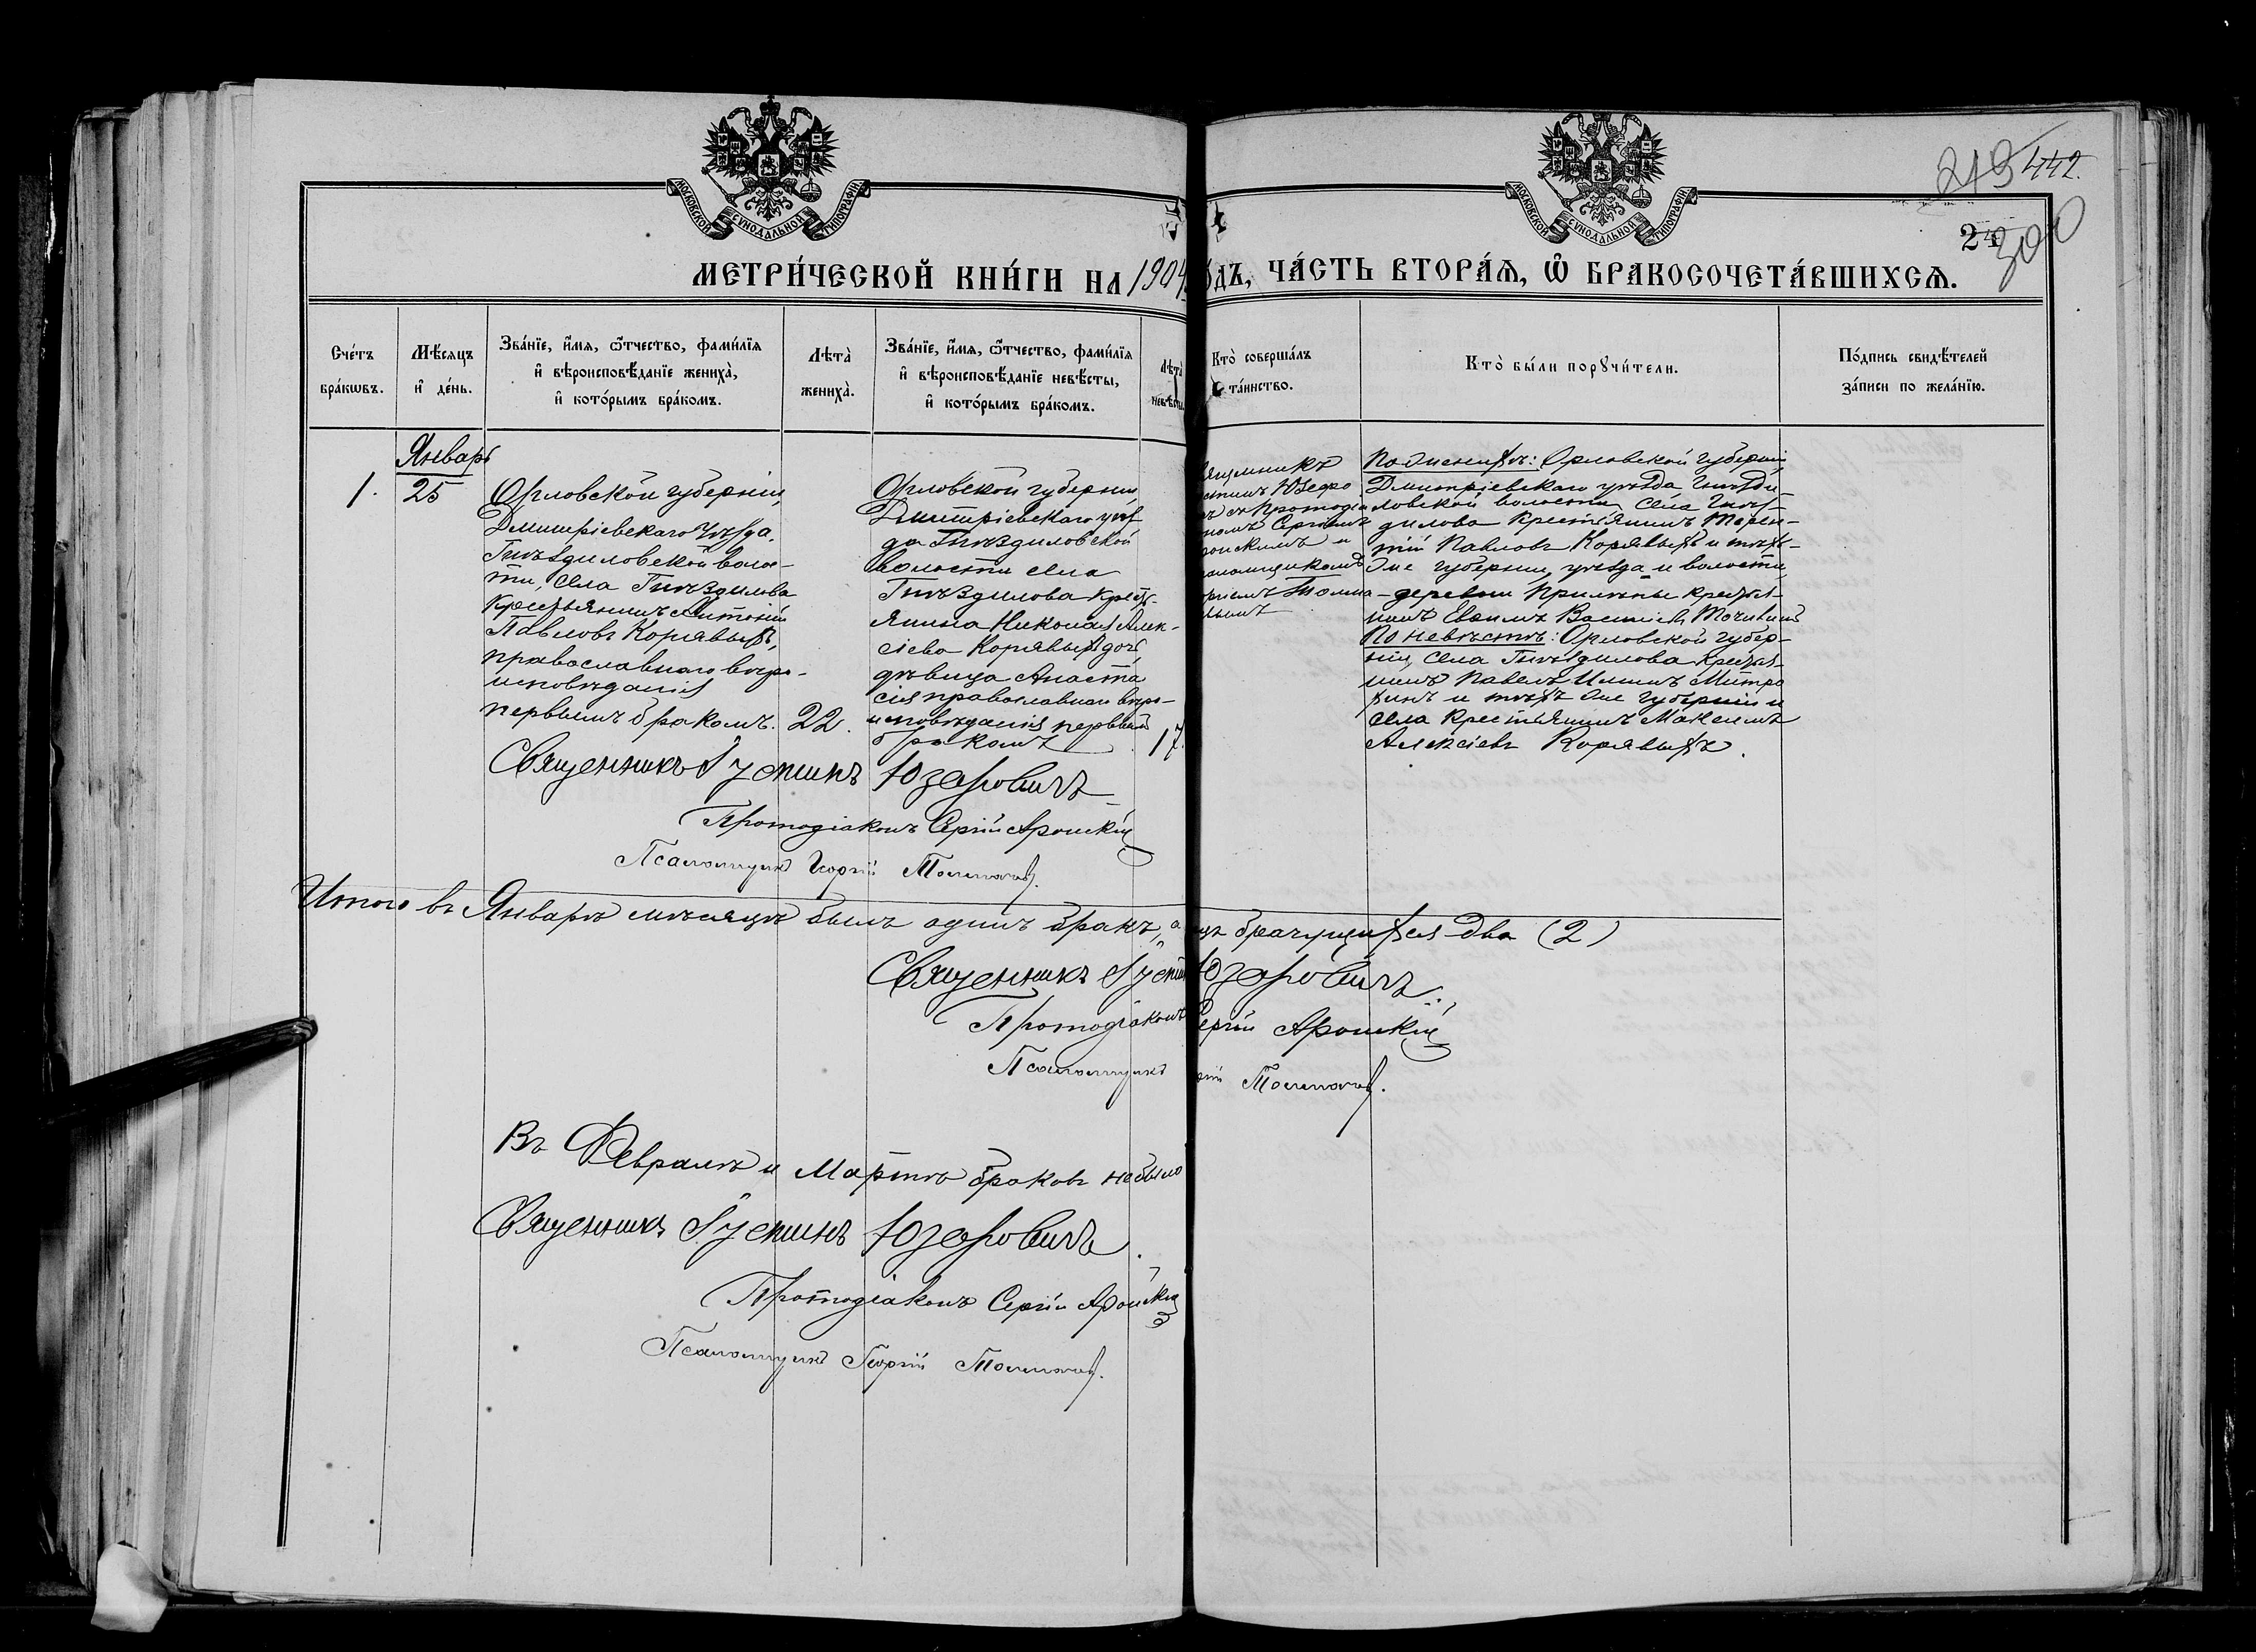 МОСКОВСКОЙ СѴНОДАЛЬНОЙ ТИПОГРАФІИ
МОСКОВСКОЙ СѴНОДАЛЬНОЙ ТИПОГРАФІИ
213 442.
24
300
МЕТРИ́ЧЕСКОЙ КНИ́ГИ НА 1904 ДЪ, ЧА́СТЬ ВТОРА́Я, Ѽ БРАКОСОЧЕТА́ВШИХСѦ.
Сче́тъ
бра́кѡвъ.
Мѣ́сяцъ
и҆ де́нь.
Зва́нїе, и҆́мя, ѻ҆́тчество, фами́лїя
и҆ вѣроисповѣ́данїе жениха̀,
и҆ кото́рымъ бра́комъ.
Лѣта̀
жениха̀.
Зва́нїе, и҆́мя, ѻ҆́тчество, фами́лїя
и҆ вѣроисповѣ́данїе невѣ́сты,
и҆ кото́рымъ бра́комъ.
Лѣта̀
невѣ́сты.
Кто̀ соверша́лъ
та́инство.
Кто̀ бы́ли порꙋчи́тели.
По́дпись свидѣ́телей
за́писи по жела́нїю.
Январь
1.
25
Орловской губерніи,
Дмитріевскаго Уѣзда.
Гнѣздиловской волос-
ти, села Гнѣздилова
Крестьянинъ Антоній
Павловъ Корявыхъ,
православнаго вѣро-
исповѣданія
первымъ бракомъ.
22.
Орловской губерніи,
Дмитріевскаго уѣз
да Гнѣздиловской
волости села
Гнѣздилова кресть-
янина Николая Алек-
сіева Корявыхъ дочь,
дѣвица Анаста
сія православнаго вѣро-
исповѣданія первымъ
бракомъ
17.
ященникъ
стинъ Юзефо
ъ съ Протодіа
номъ Сергіемъ
роискимъ и
саломщикомъ
оргіемъ Толма
вымъ
По женихѣ: Орловской губерніи,
Дмитріевскаго уѣзда Гнѣзди-
ловской волости, села Гнѣз-
дилова Крестьянинъ Терен-
тій Павловъ Корявыхъ и тѣхъ-
же губерніи, уѣзда и волости,
деревни Крестья-
нинъ Евѳимъ
По невѣстѣ: Орловской губер-
ніи, села Гнѣздилова крестья-
нинъ Павелъ Ильинъ Митро
хинъ и тѣхъ же губерніи и
села Крестьянинъ Максимъ
Алексіевъ Корявыхъ.
Священникъ Іустинъ Юзефовичъ
Протодіаконъ Сергій Ароискій
Псаломщикъ Георгій Толмачевъ.
Итого въ Январѣ мѣсяцѣ былъ одинъ бракъ, а цъ брачущихся два (2)
Священникъ Іустин Юзефовичъ
Протодіаконъ Сергій Ароискій
Псаломщикъ ргій Толмачевъ.
Въ Февралѣ и Мартѣ браковъ не было
Священникъ Іустинъ Юзефовичъ.
Протодіаконъ Сергій Ароискій
Псаломщикъ Георгій Толмачевъ.